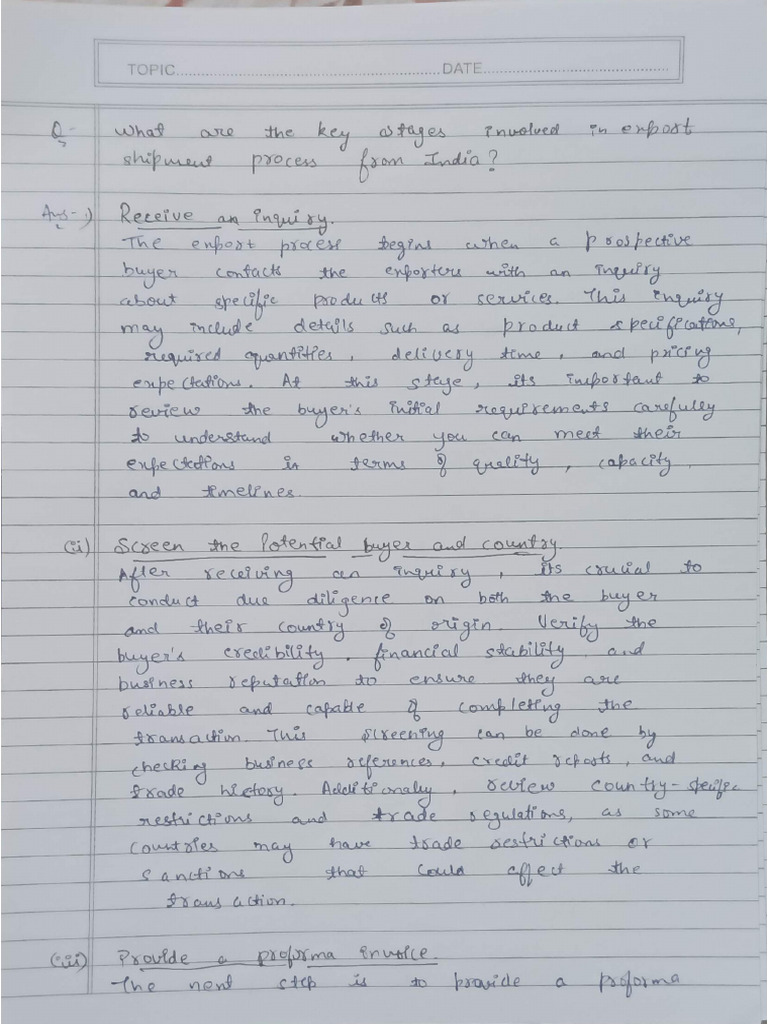 TOPIC..........DATE..........
Q- What are the key stages involved in export
shipment process from India?
Ans- i) Receive an inquiry.
The export process begins when a prospective
buyer contacts the exporters with an inquiry
about specific products or services. This inquiry
may include details such as product specifications,
required quantities, delivery time, and pricing
expectations. At this stage, its important to
review the buyer's initial requirements carefully
to understand whether you can meet their
expectations in terms of quality, capacity
and timelines.
(ii) Screen the Potential buyer and country.
After receiving an inquiry, its crucial to
conduct due diligence on both the buyer
and their country of origin. Verify the
buyer's credibility, financial stability, and
business reputation to ensure they are
reliable and capable of completing the
transaction. This screening can be done by
checking business references, credit reports, and
trade history. Additionaly, review country-specific
restrictions and trade regulations, as some
countries may have trade restrictions or
sanctions that could affect the
transaction.
(iii) Provide a proforma invoice.
The next step is to provide a proforma